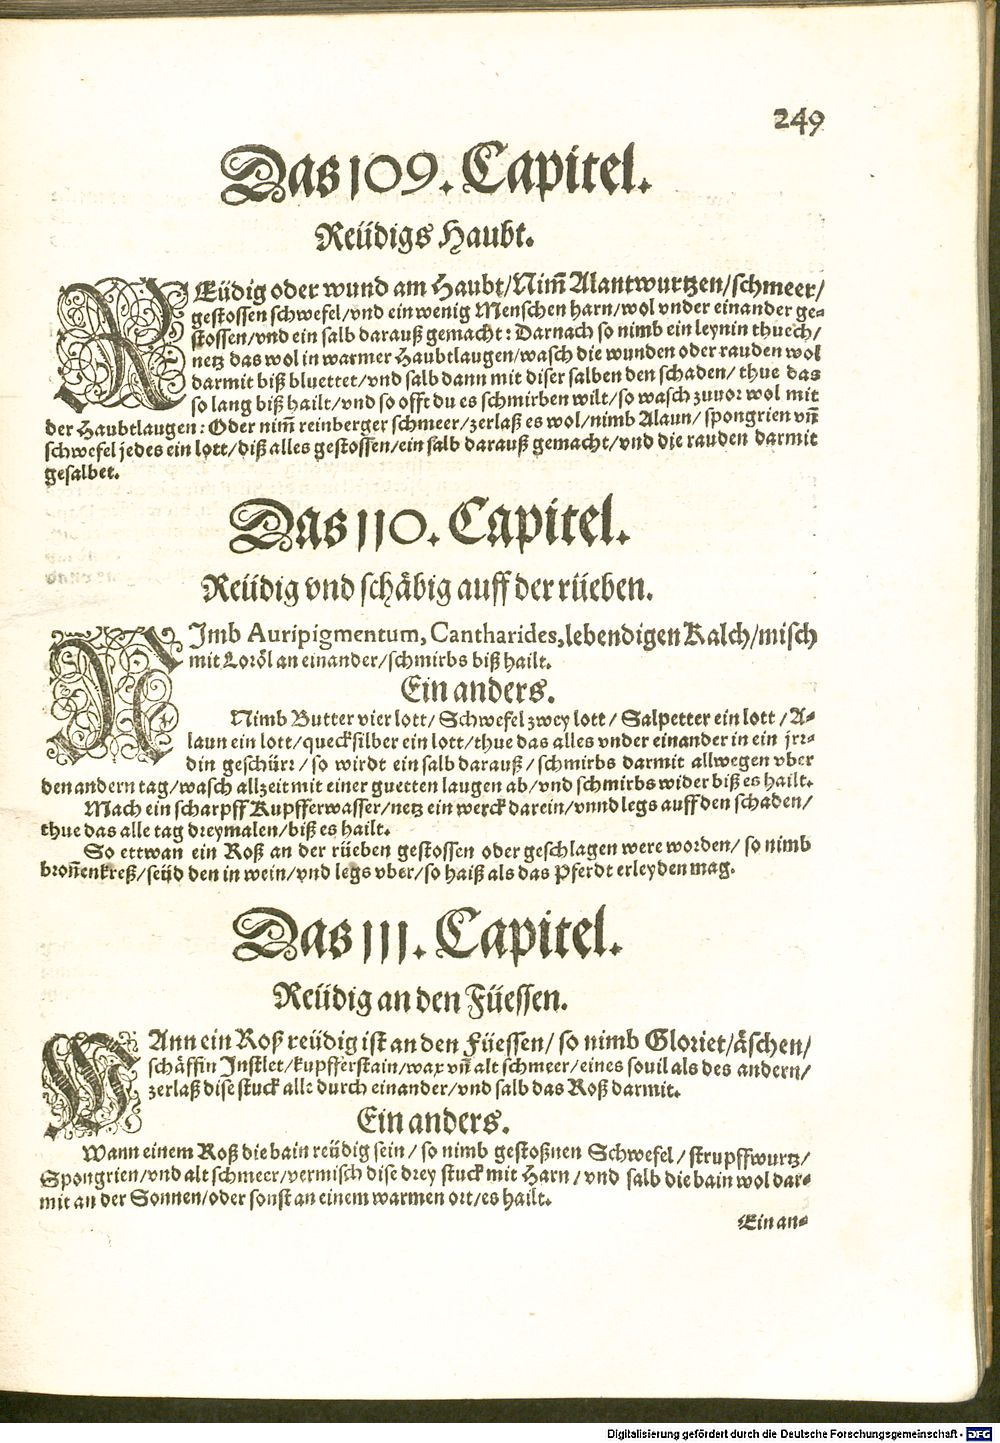 249
Das 109. Capitel.
Reüdigs Haubt.
REüdig oder wund am Haubt/Nim̃ Alantwurtzen/schmeer/
gestossen schwefel/vnd ein wenig Menschen harn/wol vnder einander ge-
stossen/vnd ein salb darauß gemacht: Darnach so nimb ein leynin thuech/
netz das wol in warmer Haubtlaugen/wasch die wunden oder rauden wol
darmit biß bluettet/vnd salb dann mit diser salben den schaden/ thue das
so lang biß hailt/vnd so offt du es schmirben wilt/so wasch zuuor wol mit
der Haubtlaugen: Oder nim̃ reinberger schmeer/zerlaß es wol/nimb Alaun/ spongrien vñ
schwefel jedes ein lott/diß alles gestossen/ein salb darauß gemacht/vnd die rauden darmit
gesalbet.
Das 110. Capitel.
Reüdig vnd schäbig auff der rüeben.
NJmb Auripigmentum, Cantharides, lebendigen Kalch/misch
mit Loröl an einander/schmirbs biß hailt.
Ein anders.
Nimb Butter vier lott/ Schwefel zwey lott/ Salpetter ein lott/ A-
laun ein lott/quecksilber ein lott/thue das alles vnder einander in ein jrr-
din geschürr/so wirdt ein salb darauß/schmirbs darmit allwegen vber
den andern tag/wasch allzeit mit einer guetten laugen ab/vnd schmirbs wider biß es hailt.
Mach ein scharpff Kupfferwasser/netz ein werck darein/vnnd legs auff den schaden/
thue das alle tag dreymalen/biß es hailt.
So ettwan ein Roß an der rüeben gestossen oder geschlagen were worden/ so nimb
bronñenkreß/seüd den in wein/vnd legs vber/so haiß als das Pferdt erleyden mag.
Das 111. Capitel.
Reüdig an den Füessen.
WAnn ein Roß reüdig ist an den Füessen/ so nimb Gloriet/äschen/
schäffin Jnstlet/kupfferstain/wax vñ alt schmeer/eines souil als des andern/
zerlaß dise stuck alle durch einander/vnd salb das Roß darmit.
Ein anders.
Wann einem Roß die bain reüdig sein/ so nimb gestoßnen Schwefel/ strupffwurtz/
Spongrien/vnd alt schmeer/vermisch dise drey stuck mit Harn/ vnd salb die bain wol dar-
mit an der Sonnen/oder sonst an einem warmen ort/es hailt.
Ein an-
Digitalisierung gefördert durch die Deutsche Forschungsgemeinschaft - DFG